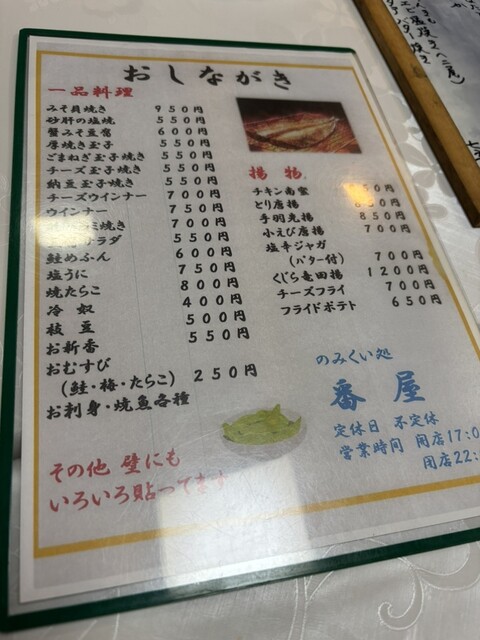 おしながき
一品料理
みそ貝焼き 950円
砂肝の塩焼 550円
蟹みそ豆腐 600円
厚焼き玉子 550円
ごまねぎ玉子焼き 550円
チーズ玉子焼き 550円
納豆玉子焼き 550円
チーズウインナー 700円
ウインナー 750円
ミ焼き 700円
サラダ 550円
鮭めふん 600円
塩うに 750円
焼たらこ 800円
冷奴 400円
枝豆 500円
お新香 550円
おむすび
(鮭・梅・たらこ) 250円
お刺身・焼魚各種
その他 壁にも
いろいろ貼ってます
揚物
チキン南蛮 50円
とり唐揚 850円
手羽先揚 850円
小えび唐揚 700円
塩辛ジャガ
(バター付) 700円
くじら竜田揚 1200円
チーズフライ 700円
フライドポテト 650円
のみくい処
番屋
定休日 不定休
営業時間 閉店17:0
閉店22: